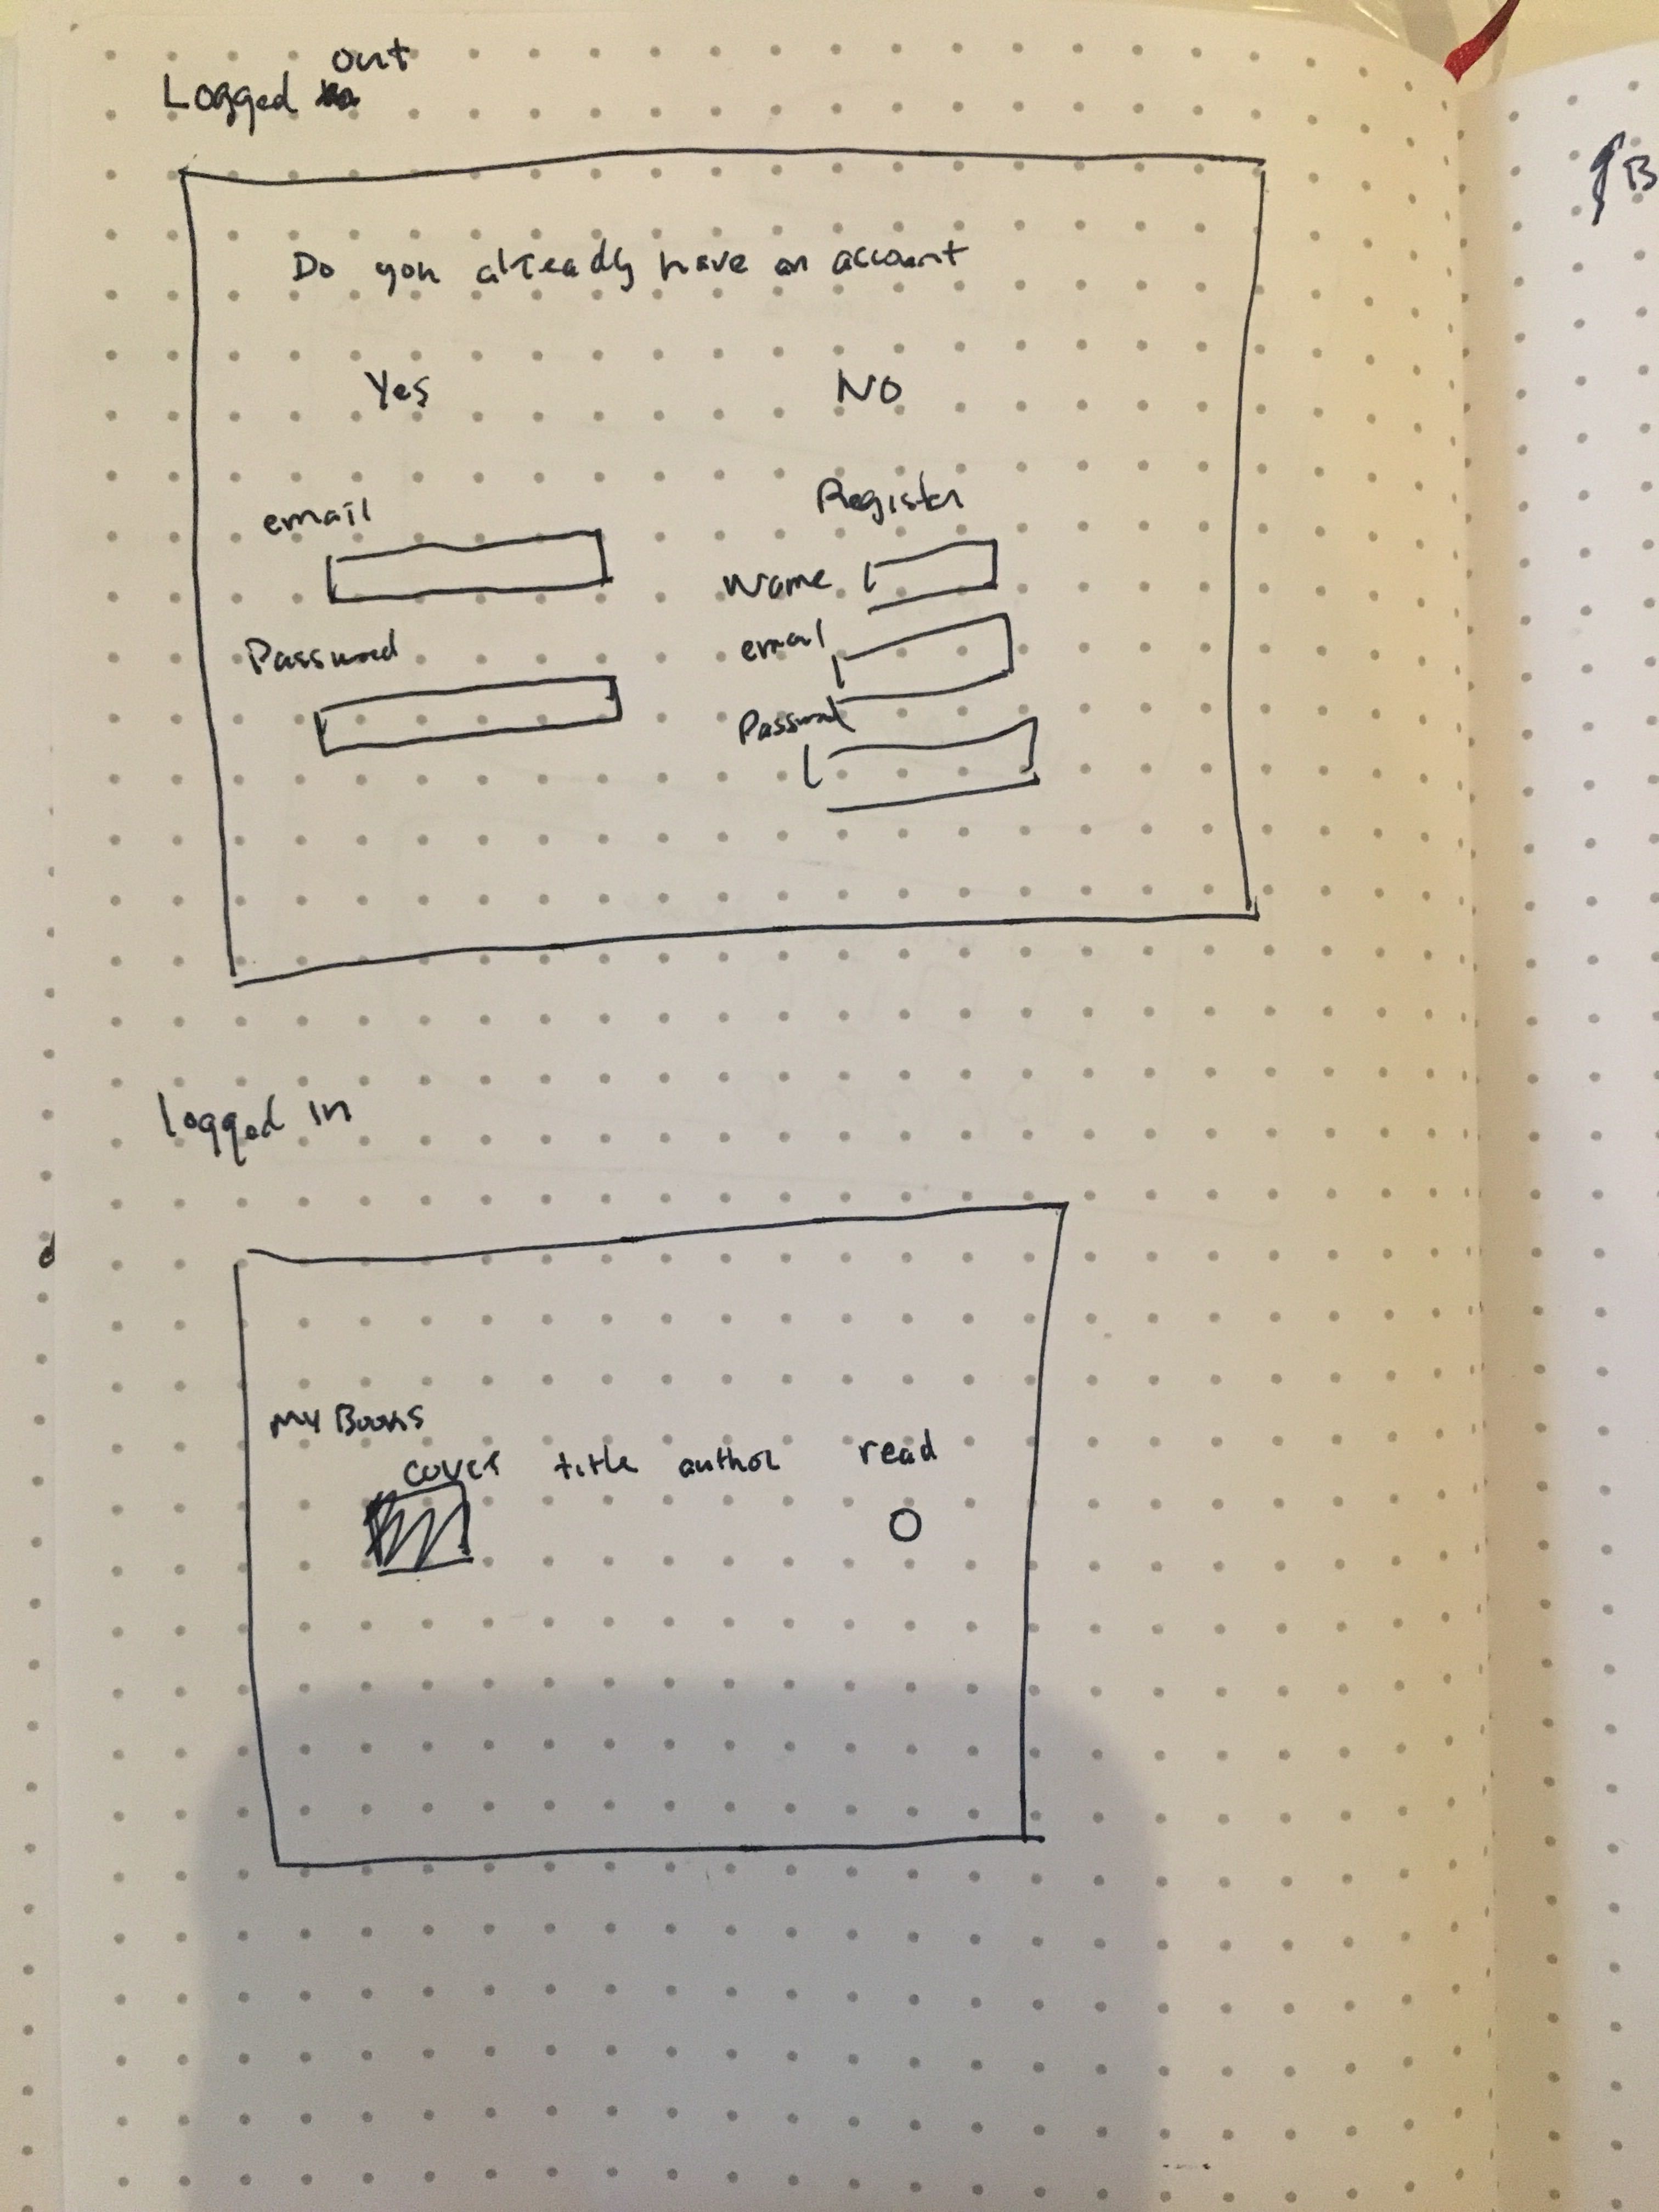 out
Logged
Do you already have an account
Yes NO
email
Password
Register
Name
email
Password
logged in
My Books
cover title author read
B